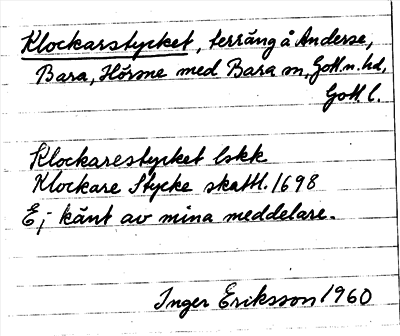 Klockarstycket, terräng å Anderse,
Bara, Hörsne med Bara sn, Gotl.n.hd,
Gotl l.
Klockarestycket lskk
Klockare Stycke skattl. 1698
Ej känt av mina meddelare.
Inger Eriksson 1960